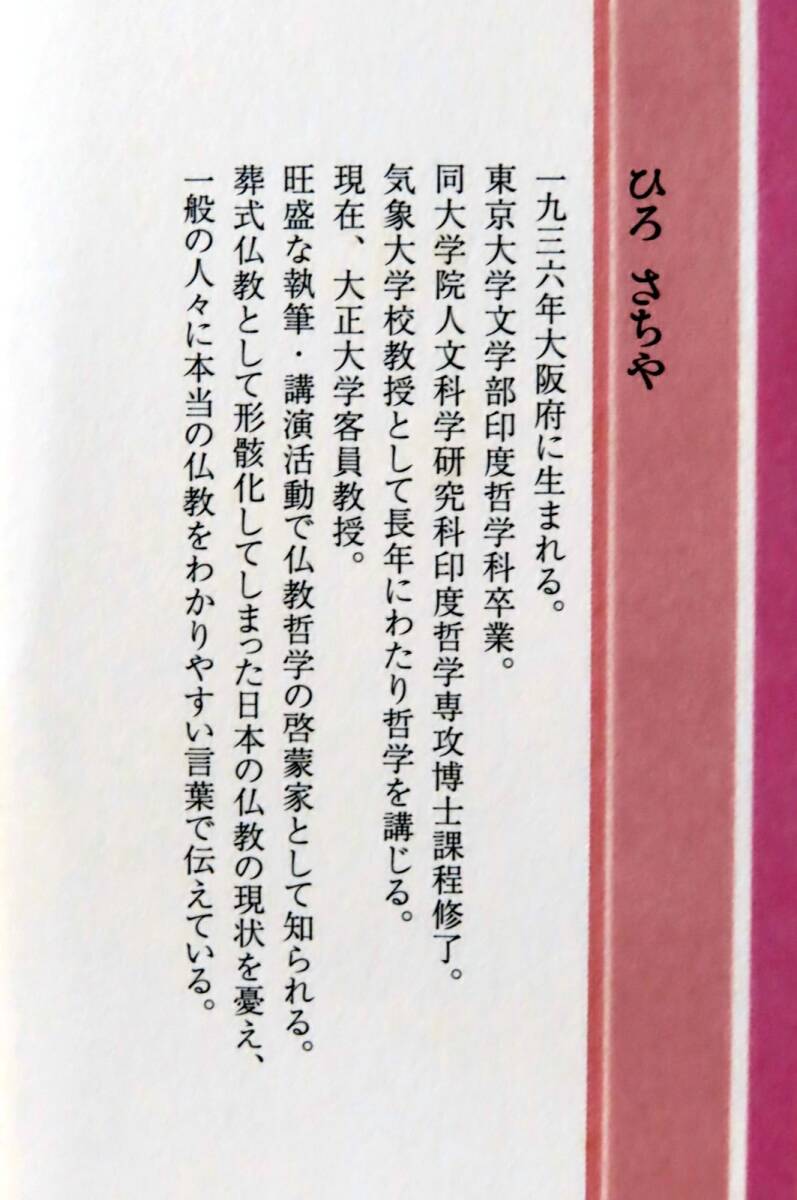 ひろ さちや
一九三六年大阪府に生まれる。
東京大学文学部印度哲学科卒業。
同大学院人文科学研究科印度哲学専攻博士課程修了。
気象大学校教授として長年にわたり哲学を講じる。
現在、大正大学客員教授。
旺盛な執筆・講演活動で仏教哲学の啓蒙家として知られる。
葬式仏教として形骸化してしまった日本の仏教の現状を憂え、
一般の人々に本当の仏教をわかりやすい言葉で伝えている。